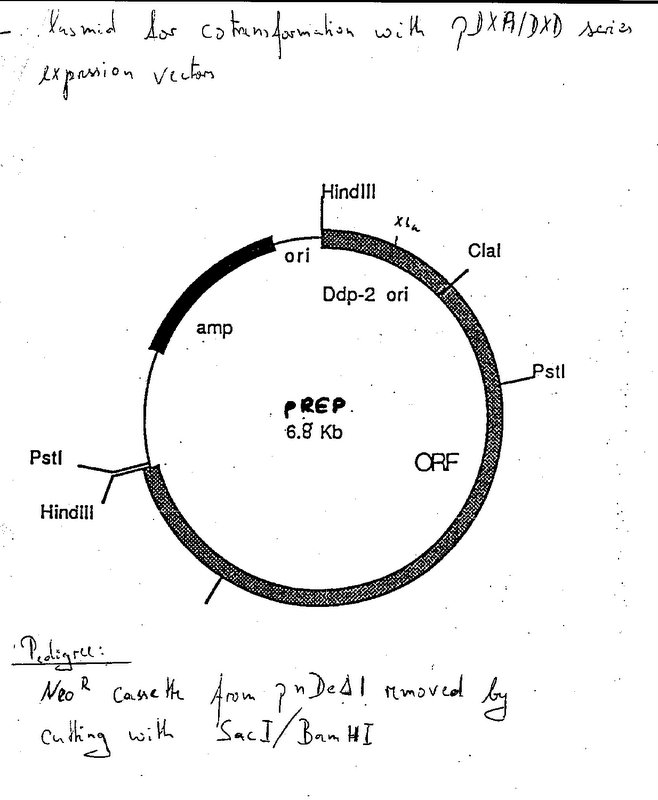 - Plasmid for cotransformation with pDXA/DXD series
expression vectors
HindIII
Xba
ClaI
ori
Ddp-2 ori
amp
PstI
pREP
6.8 Kb
ORF
PstI
HindIII
Pedigree:
Neo R cassette from pnDeΔI removed by
cutting with SacI/BamHI